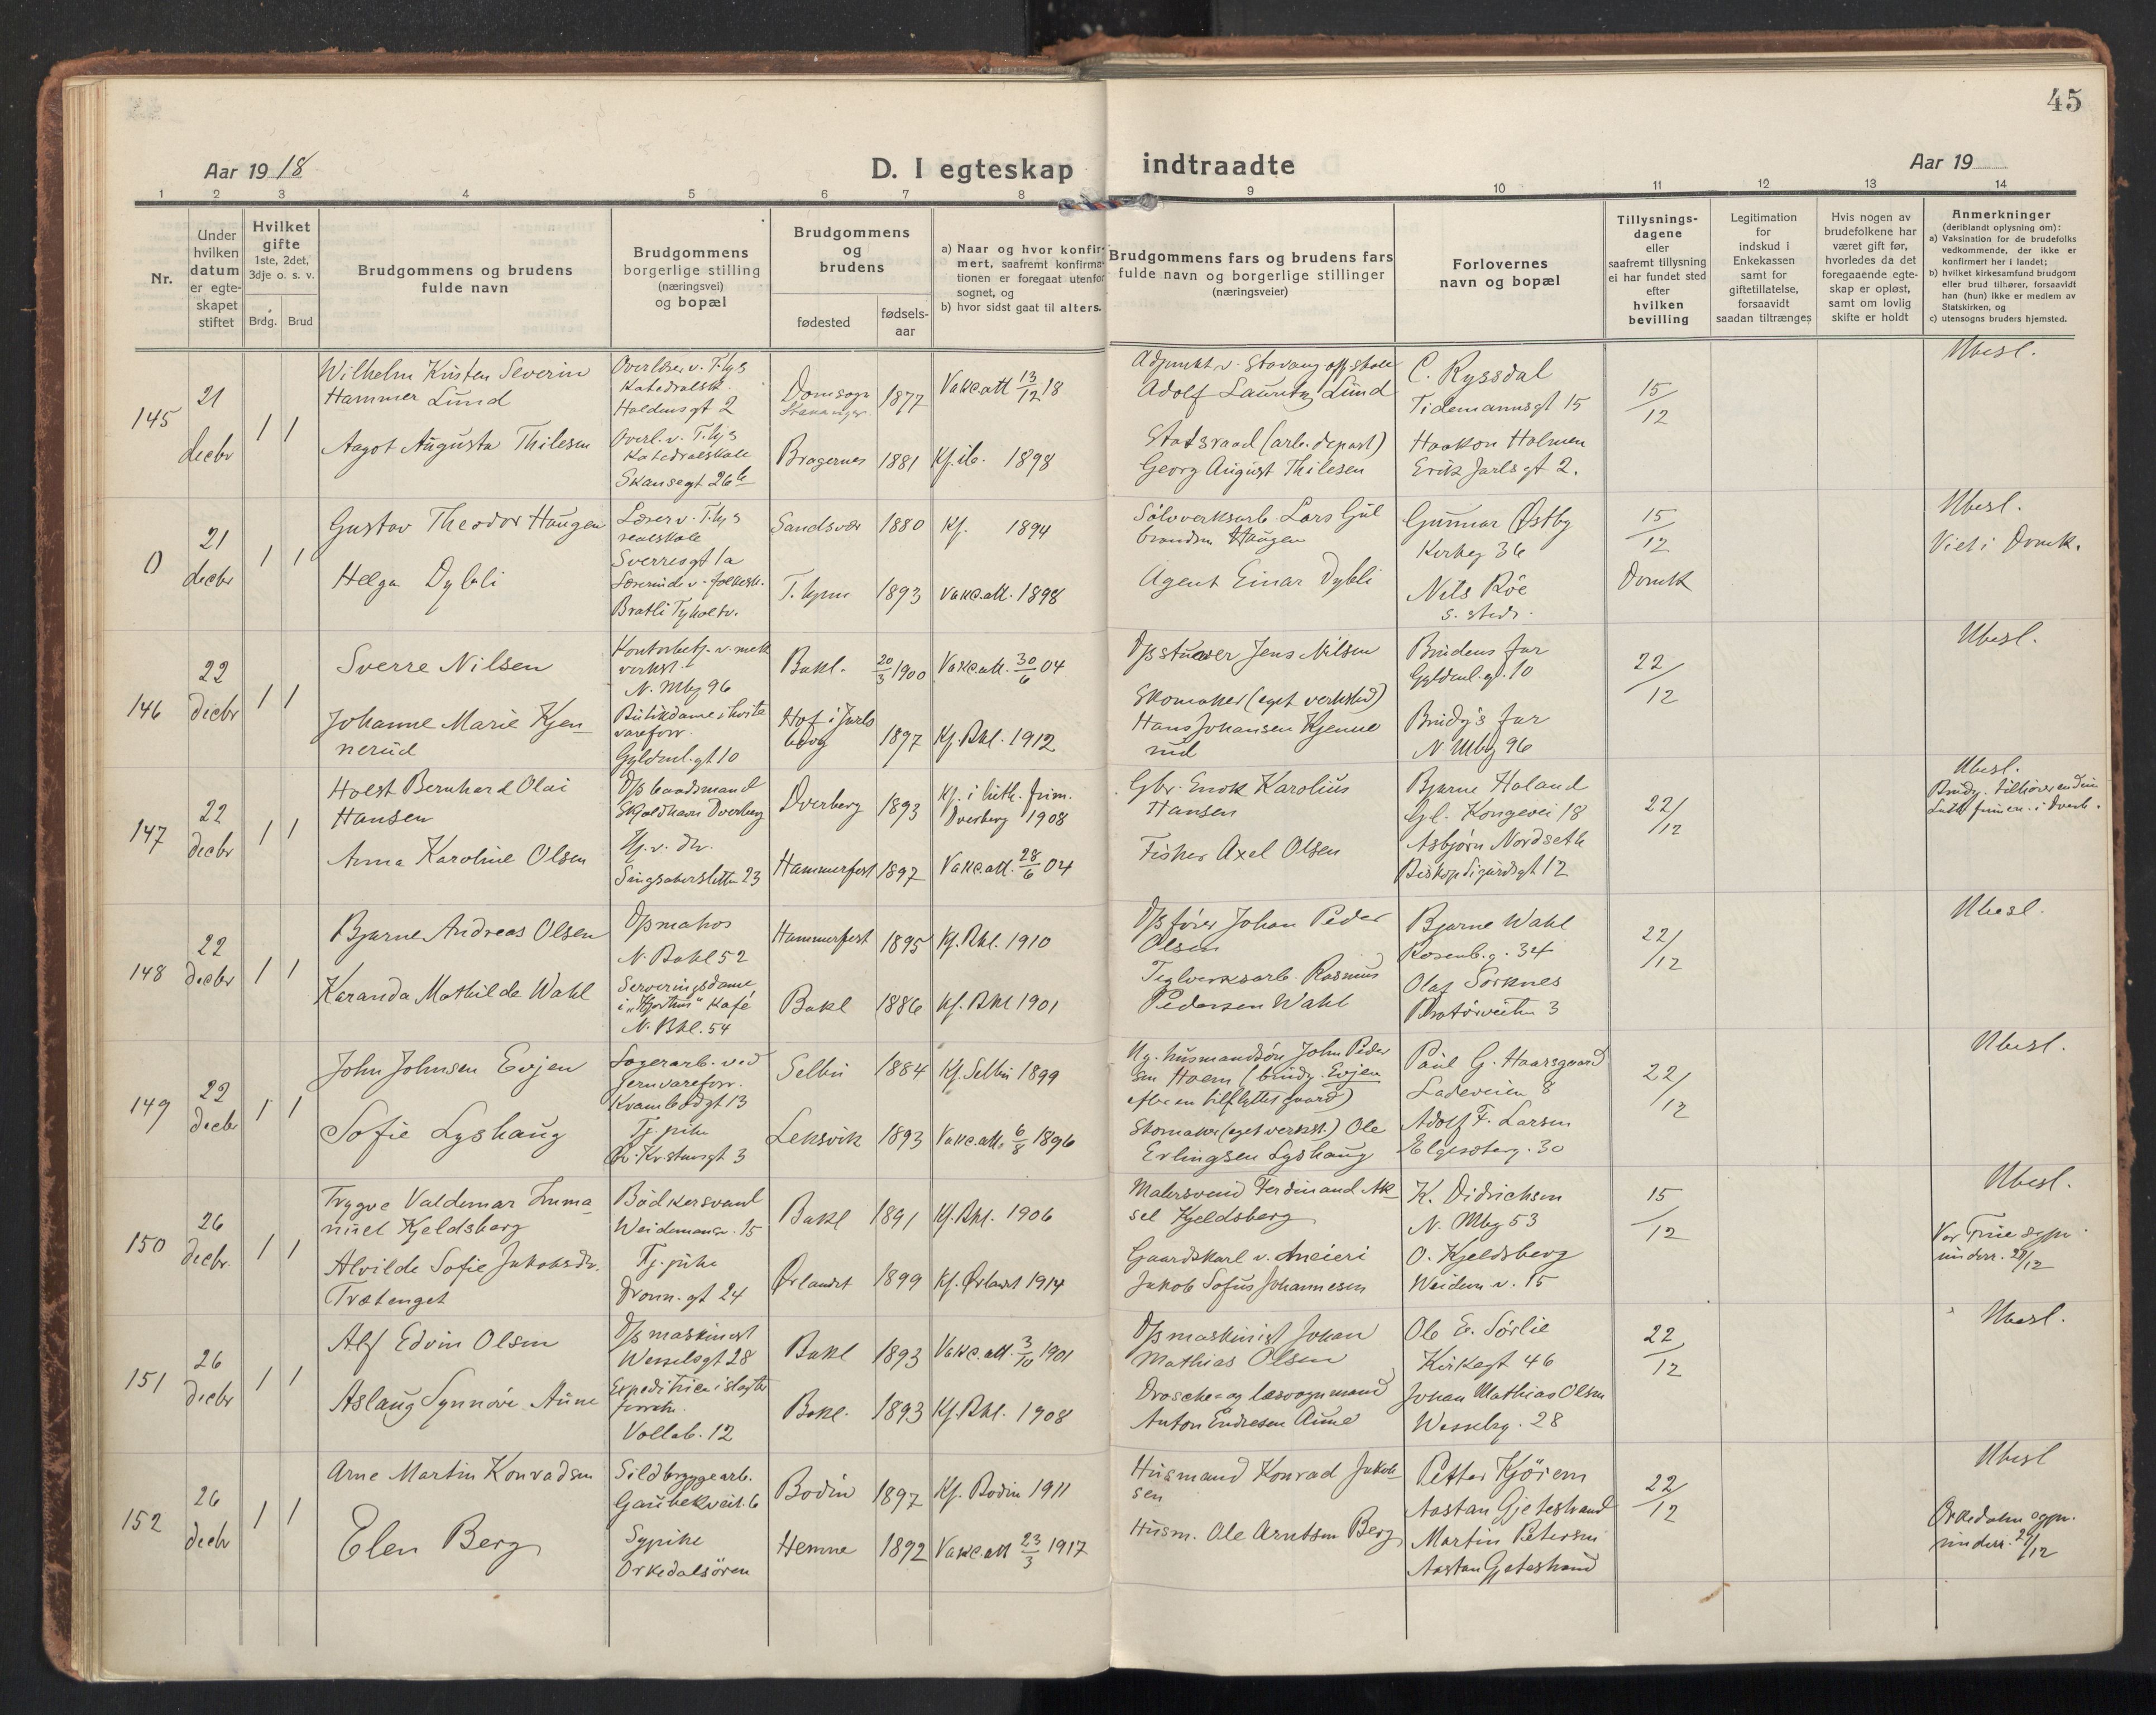 45
Aar 1918
D. I egteskap indtraadte
Aar 19
1 2 3 4 5 6 7 8 9 10 11 12 13 14
Nr.
Under
hvilken
datum
er egte-
skapet
stiftet
Hvilket
gifte
1ste, 2det,
3dje o. s. v.
Brdg. Brud
Brudgommens og brudens
fulde navn
Brudgommens
borgerlige stilling
(næringsvei)
og bopæl
Brudgommens
og
brudens
fødested
fødsels-
aar
a) Naar og hvor konfir-
mert, saafremt konfirma-
tionen er foregaat utenfor
sognet, og
b) hvor sidst gaat til alters.
Brudgommens fars og brudens fars
fulde navn og borgerlige stillinger
(næringsveier)
Forlovernes
navn og bopæl
Tillysnings-
dagene
eller
saafremt tillysning
ei har fundet sted
efter
hvilken
bevilling
Legitimation
for
indskud i
Enkekassen
samt for
giftetillatelse,
forsaavidt
saadan tiltrænges
Hvis nogen av
brudefolkene har
været gift før,
hvorledes da det
foregaaende egte-
skap er opløst,
samt om lovlig
skifte er holdt
Anmerkninger
(deriblandt oplysning om):
a) Vaksination for de brudefolks
vedkommende, der ikke er
konfirmert her i landet;
b) hvilket kirkesamfund brudgom
eller brud tilhører, forsaavidt
han (hun) ikke er medlem av
Statskirken, og
c) utensogns bruders hjemsted.
145
21
decbr
1 1
Wilhelm Kristen Severin
Hammer Lund
Overlærer v. T.hjs
Katedralsk.
Haldensgt 2
Domsogn
Stavanger
1877
Vakc.att 13/12 18
Adjunkt v. Stavang off. skole
Adolf Lauritz Lund
C. Ryssdal
Tidemannsgt 15
15/12
Ubesl.
Aagot Augusta Thilesen
Overl. v. T.hjs
Katedralskole
Skansegt 26b
Bragernes
1881
Kf. ib. 1898
Statsraad (arb. depart)
Georg August Thilesen
Haakon Holmen
Erik Jarlsgt 2.
0
21
decbr
1 1
Gustav Theodor Haugen
Lærer v. T.hjs
realskole
Sverresgt 1a
Sandsvær
1880
Kf. 1894
Sølvverksarb. Lars Gul
brandsen Haugen
Gunnar Østby
Kirkeg 36
15/12
Domk
Ubesl.
Viet i Domk.
Helga Dybli
Lærerinde v. folkesk.
Bratli Tyholtv.
T.hjem
1893
Vakc.att. 1898
Agent Einar Dybli
Nils Röe
s. steds.
146
22
decbr
1 1
Sverre Nilsen
Kontorbetj. v. mek
verkst.
N. Mbg 96
Bakl.
20/3 1900
Vakc.att. 30/6 04
Opstuver Jens Nilsen
Brudens far
Gyldenl. gt. 10
22/12
Ubesl.
Johanne Marie Kjen-
nerud
Butikdame i hvite
vareforr.
Gyldenl. gt 10
Hof i Jarls
berg
1897
Kf. Bkl. 1912
Skomaker (eget verksted)
Hans Johansen Kjenne
rud
Brudg's far
N. Mbg 96
147
22
decbr
1 1
Holst Bernhard Olai
Hansen
D/s baadsmand
Skjoldhavn Dverberg
Dverberg
1893
Kf. i luth. frim.
Dverberg 1908
Gbr. Enok Karolius
Hansen
Bjarne Haland
Gl. Kongevei 18
22/12
Ubesl.
Anna Karoline Olsen
Singsakersletten 23
Hammerfest
1897
Vakc.att. 28/6 04
Fisker Axel Olsen
Asbjørn Nordseth
Biskop Sigurdsgt 12
148
22
decbr
1 1
Bjarne Andreas Olsen
D/s matros
N. Bakl 52
Hammerfest
1895
Kf. Bkl. 1910
D/s fører Johan Peder
Olsen
Bjarne Wahl
Rosenb. g. 34
22/12
Ubesl.
Karanda Mathilde Wahl
Serveringsdame
i "Hjorten" Kafé
N. Bkl. 54
Bakl
1886
Kf. Bkl 1901
Teglverksarb. Rasmus
Pedersen Wahl
Olaf Sorknes
Brattörveiten 3
149
22
decbr
1 1
John Johnsen Evjen
Lagerarb. ved
jernvareforr.
Krambodgt 13
Selbu
1884
Kf. Selbu 1899
Ug. husmandsön John Peder
sen Hoem (brudg. Evjen
efter en tilflyttet gaard)
Paul G. Haarsgaard
Ladeveien 8
22/12
Ubesl.
Sofie Lyshaug
Tj. pike
Leksvik
1893
Vakc.att. 6/8 1896
Skomaker (eget verkst.) Ole
Erlingsen Lyshaug
Adolf F. Larsen
Elgeseterg. 30
150
26
decbr.
1 1
Trygve Valdemar Imma-
nuel Kjeldsberg
Bödkersvend
Weidemansv. 15
Bakl
1891
Kf. Bkl. 1906
Malersvend Ferdinand Ak-
sel Kjeldsberg
K. Didrichsen
N. Mbg 53
15/12
Ubesl.
Vor Frue sogn
underr. 28/12
Alvilde Sofie Jakobsdtr.
Trætenget
Tj. pike
Dronn. gt 24
Ørlandet
1899
Kf. Ørlandt 1914
Gaardskarl v. meieri
Jakob Sofus Johannesen
O. Kjeldsberg
Weidem v. 15
151
26
decbr
1 1
Alf Edvin Olsen
D/s maskinist
Wesselsgt 28
Bakl
1893
Vakc.att. 3/10 1901
D/s maskinist Johan
Mathias Olsen
Ole E. Sörlie
Kirkegt 46
22/12
Ubesl.
Aslaug Synnöve Aune
Expeditrice i slagter
forretn.
Vollab. 12
Bakl.
1893
Kf. Bkl. 1908
Drosche- og læsvognmand
Anton Endresen Aune
Johan Mathias Olsen
Wesselsg. 28
152
26
decbr
1 1
Arne Martin Konradsen
Sildbryggearb.
Gaubekveit. 6
Bodin
1897
Kf. Bodin 1911
Husmand Konrad Jakob-
sen
Petter Kjörem
Aastan Gjetestrand
22/12
Ubesl
Orkedalen sogn.
underr. 28/12
Elen Berg
Sypike
Orkedalsören
Hemne
1892
Vakc.att 23/3 1917
Husm. Ole Arntsen Berg
Martin Petersen
Aastan Gjetestrand